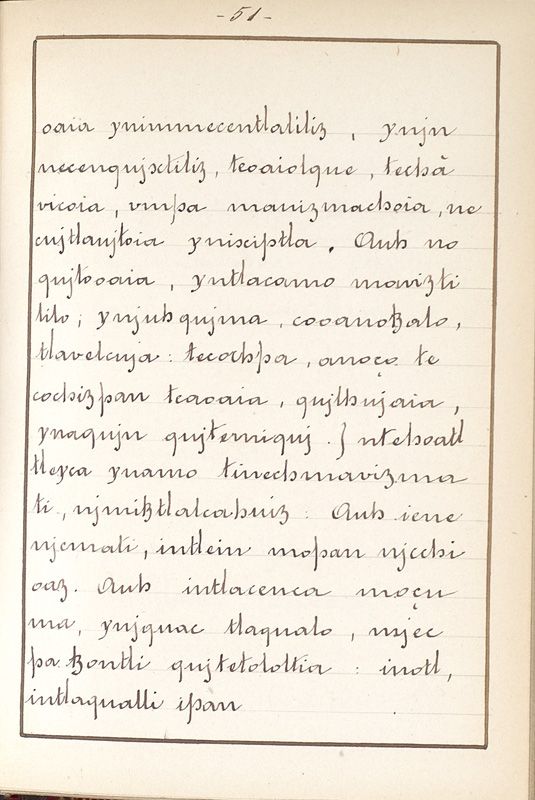 - 51 -
oaia ynimmecentlaliliz, ynjn
necenqujxtiliz, teoaiolque, techā
vicoia, vmpa mavizmachoia, ne
cujtlaujtoia ynixiptla. Auh no
qujtooaia, yntlacamo mavizti
lilo; ynjuh qujma, cooanotzalo,
tlavelcuja: tecochpa, anoço te
cochizpan teaoaia, qujlhujaia,
ynaqujn qujtemiquj.} ntehoatl
tleyca ynamo tinechmavizma
ti, njmitztlalcahuiz: Auh iene
njcmati, intlein mopan njcchi
oaz. Auh intlacenca moçu
ma, ynjquac tlaqualo, mjec
pa tzontli qujtetololtia: inotl,
intlaqualli ipan